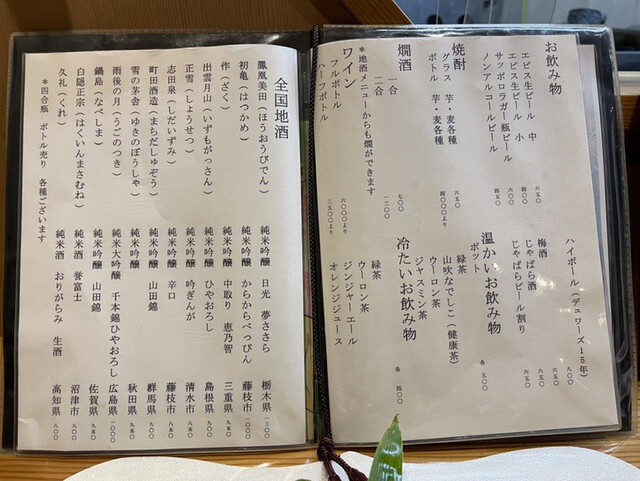 お飲み物
エビス生ビール 中 六五〇
エビス生ビール 小 四〇〇
サッポロラガー瓶ビール 六〇〇
ノンアルコールビール 四五〇
焼酎
グラス 芋・麦各種 六五〇
ボトル 芋・麦各種 四〇〇〇より
燗酒
一合 七〇〇
二合 一三〇〇
*地酒メニューからも燗ができます
ワイン
フルボトル 六〇〇〇より
ハーフボトル 三五〇〇より
ハイボール(デュワーズ15年) 八〇〇
梅酒 六五〇
じゃばら酒 六五〇
じゃばらビール割り 六五〇
温かいお飲み物
ポット 各 五〇〇
緑茶
山吹なでしこ(健康茶)
ウーロン茶
ジャスミン茶
冷たいお飲み物 各 四〇〇
緑茶
ウーロン茶
ジンジャーエール
オレンジジュース
全国地酒
鳳凰美田(ほうおうびでん) 純米吟醸 日光 夢ささら 栃木県 一二〇〇
初亀(はつかめ) 純米吟醸 からからべっぴん 藤枝市 一〇〇〇
作(ざく) 純米吟醸 中取り 恵乃智 三重県 九五〇
出雲月山(いずもがっさん) 純米吟醸 ひやおろし 島根県 九〇〇
正雪(しょうせつ) 純米吟醸 吟ぎんが 清水市 九五〇
志田泉(しだいずみ) 純米吟醸 辛口 藤枝市 九五〇
町田酒造(まちだしゅぞう) 純米吟醸 山田錦 群馬県 九五〇
雪の茅舎(ゆきのぼうしゃ) 純米吟醸 秋田県 九五〇
雨後の月(うごのつき) 純米大吟醸 千本錦ひやおろし 広島県 一〇〇〇
鍋島(なべしま) 純米吟醸 山田錦 佐賀県 九五〇
白隠正宗(はくいんまさむね) 純米酒 誉富士 沼津市 八〇〇
久礼(くれ) 純米酒 おりがらみ 生酒 高知県 八〇〇
*四合瓶 ボトル売り 各種ございます